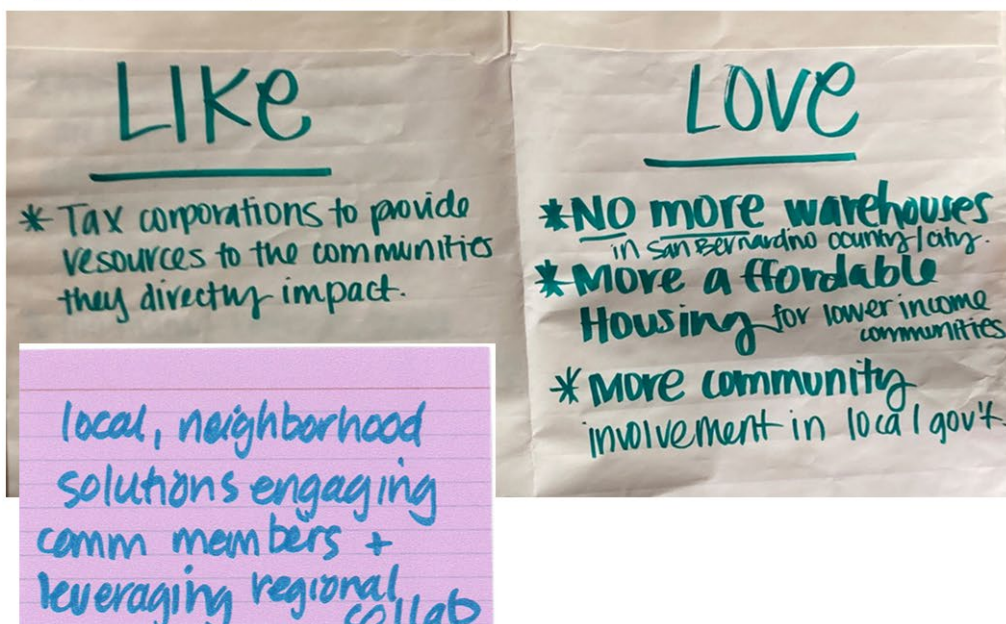 LIKE
* Tax corporations to provide
resources to the communities
they directly impact.
LOVE
*NO more warehouses
in San Bernardino county/city.
*More affordable
Housing for lower income
communities
* More community
involvement in local gov't.
local, neighborhood
solutions engaging
comm members +
leveraging regional
collab